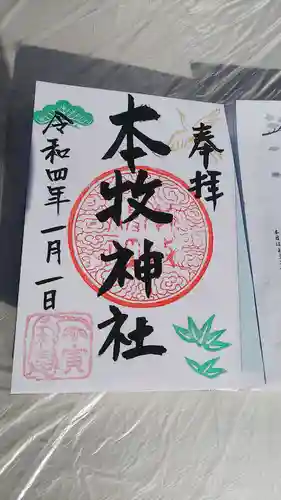 奉拝
本牧神社
令和四年一月一日